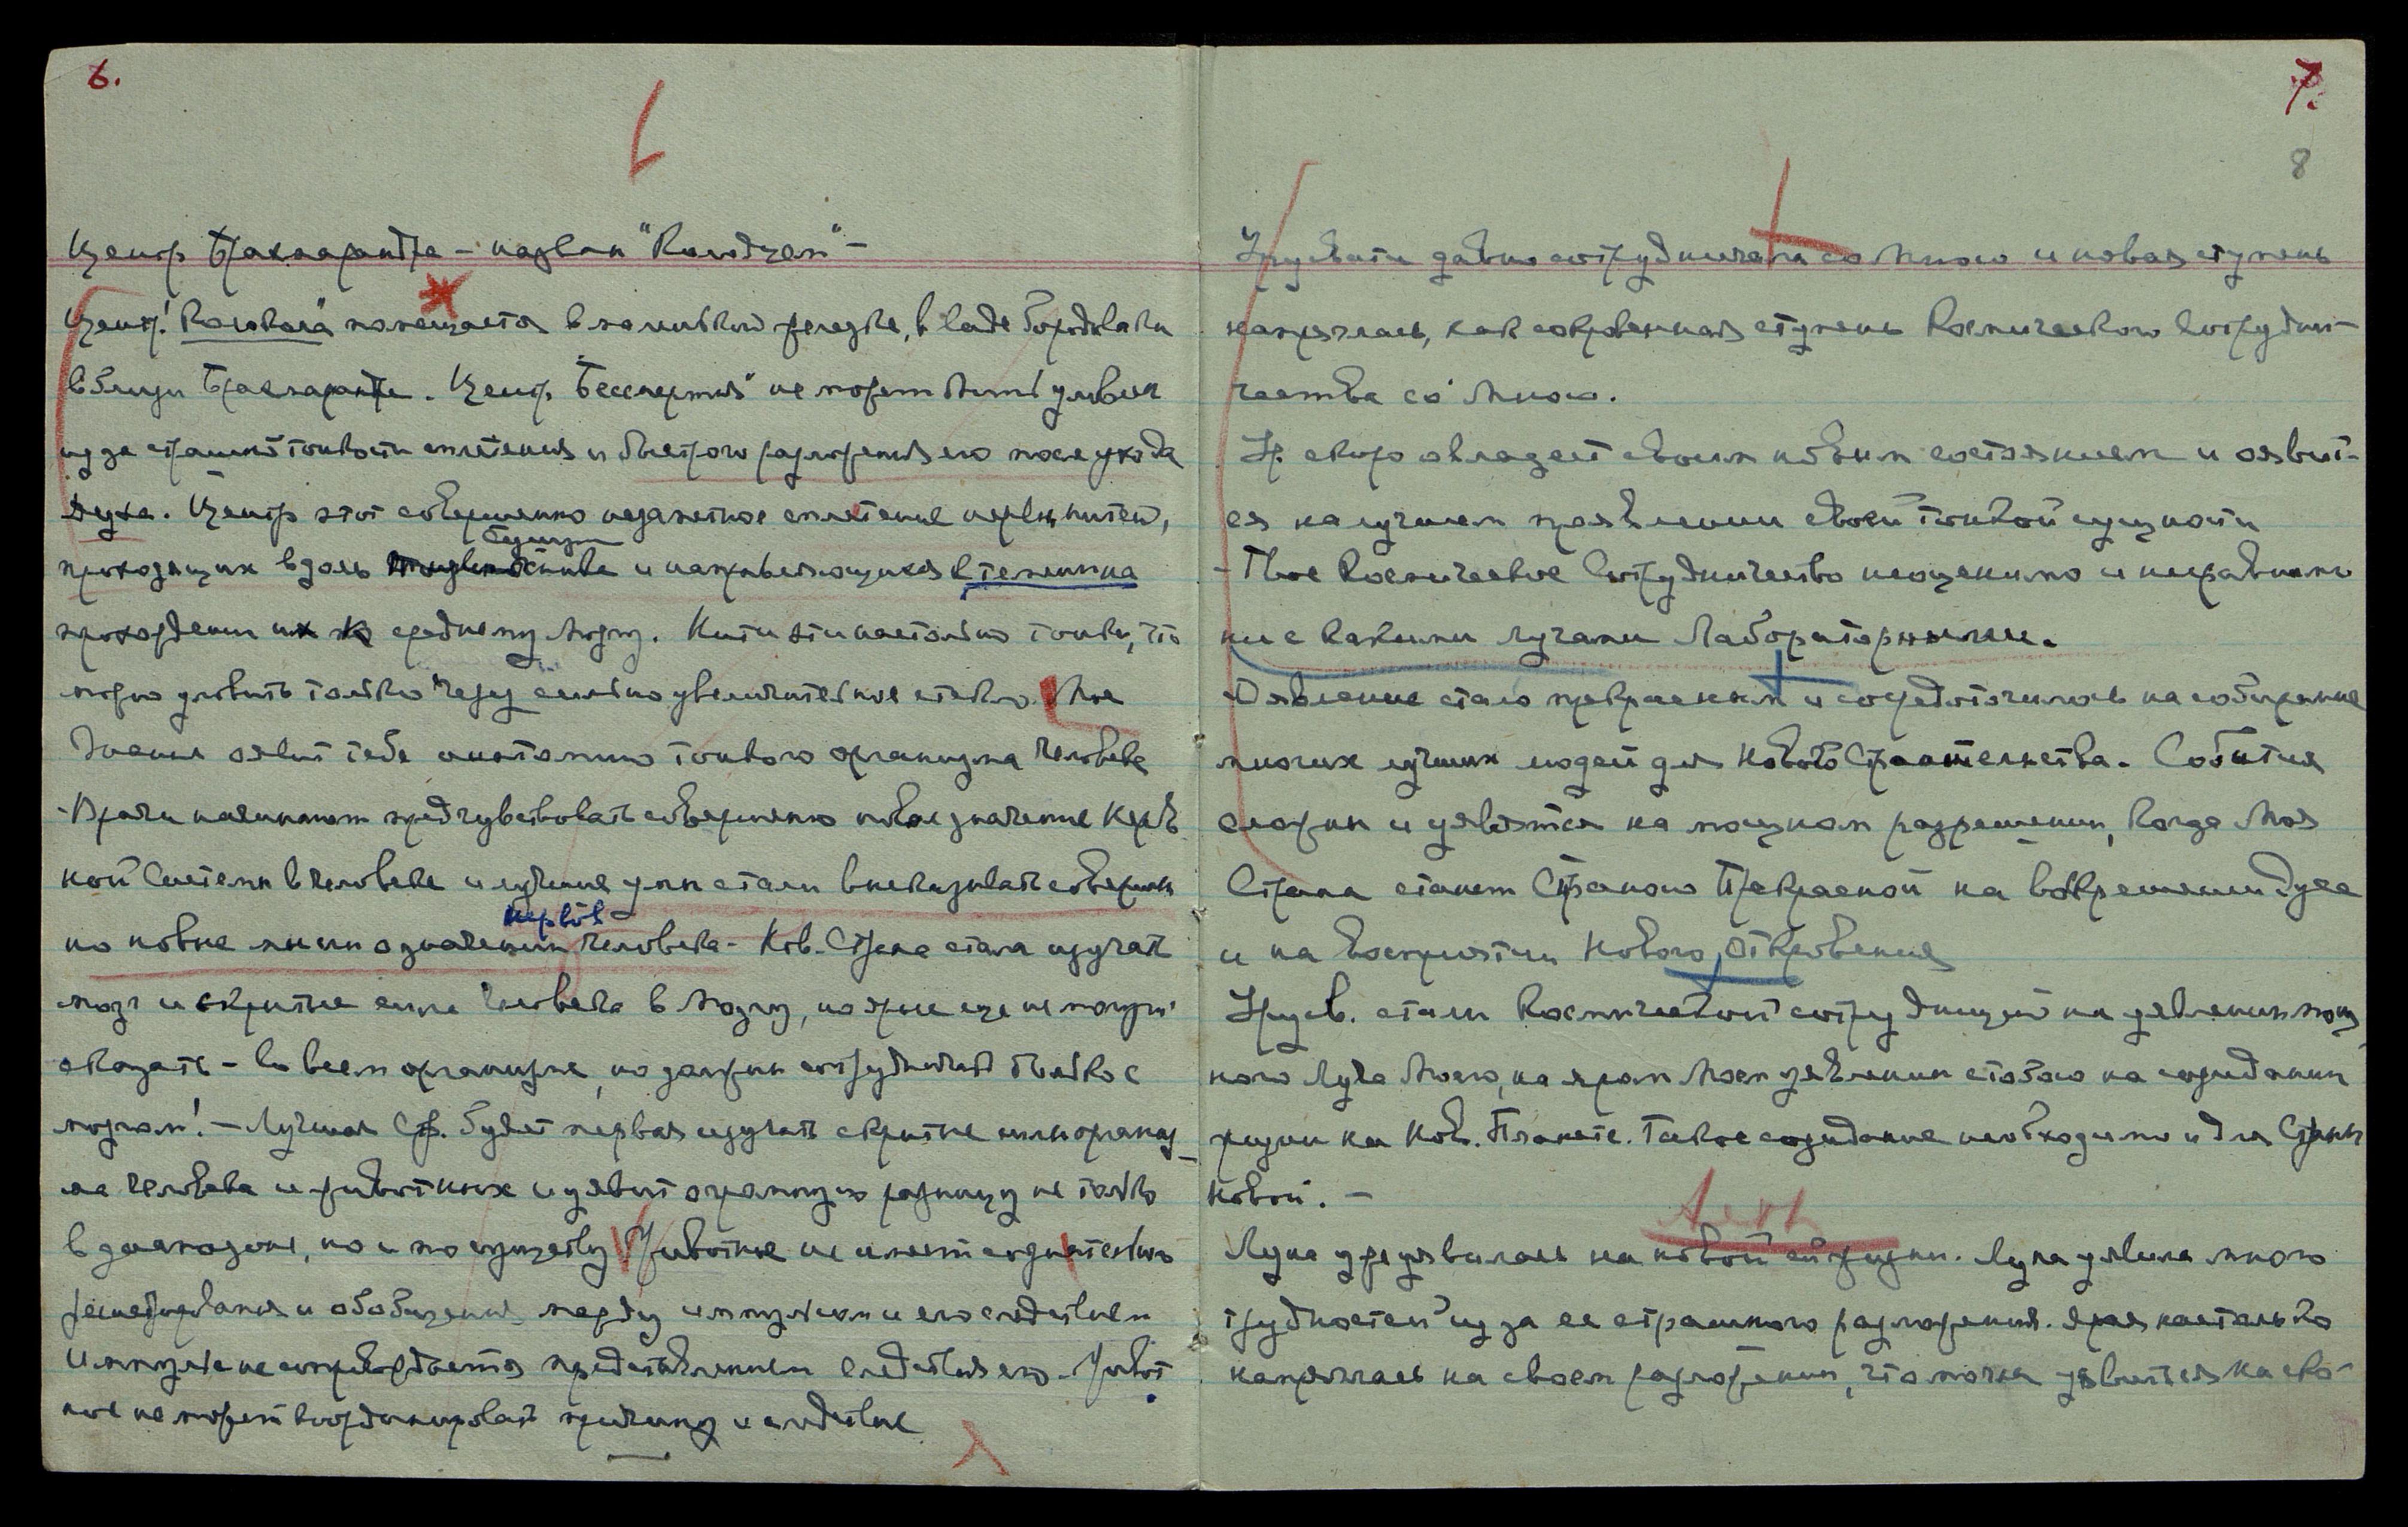 6.
Центр Брахмарандра – назван "Кундзал" –
Центр "Колокол" помещается в маленькой железке, в виде бородавки
вблизи Брахмарандры. Центр "Бессмертия" не может быть уловим
из за страшной тонкости сплетения и быстрого разложения его после ухода
духа. Центр этот совершенно незаметное сплетение нервн. нитей,
проходящих вдоль спинного и направляющихся к темени на
прохождении их к среднему мозгу. Нити эти настолько тонки, что
можно уловить только через сильно увеличительное стекло. Мое
Знание явит тебе анатомию тонкого организма человека
- Врачи начинают предчувствовать совершенно новое значение Нерв-
ной Системы в человеке и лучшие умы стали высказывать совершен-
но новые мысли о значении нервов человека – Нов. Страна стала изучать
мозг и скрытые силы человека в мозгу, но ярые еще не могут
сказать – во всем организме, но должны сотрудничать только с
мозгом! – Лучшая Стр. будет первая изучать скрытые силы организ-
ма человека и животных и уявит огромную разницу не только
в диапазоне, но и по существу Животные не имеют сознательного
и обобщения между импульсом и его следствием
Импульс не сопровождается представлением следствия его. Живот-
ное не может координировать причину и следствие
7.
8
Урусвати давно сотрудничала со Мною и новая ступень
напряглась, как сокровенная ступень Космического Сотрудни-
чества со Мною.
Ур. скоро овладеет своим новым состоянием и оявит-
ся на лучшем проявлении своей тонкой сущности
- Твое Космическое Сотрудничество неоценимо и несравнимо
ни с какими лучами Лабораторными.
Оявление стало прекрасным и сосредоточилось на собирании
многих лучших людей для Нового Строительства. События
сложны и уявятся на мощном разрешении, когда Моя
Страна станет Страною Прекрасной на воскрешении Духа
и на восприятии Нового Откровения
Урусв. стала Космической сотрудницей на уявлении мощ-
ного Луча Моего, на ярам Моем уявлении с тобою на созидании
жизни на Нов. Планете. Такое созидание необходимо и для Страны
Новой. –
Луна уже уявилась на новой ей жизни. Луна уявила много
трудностей из за ее страшного разложения. Ярая настолько
напряглась на своем разложении, что могла уявиться на сво-